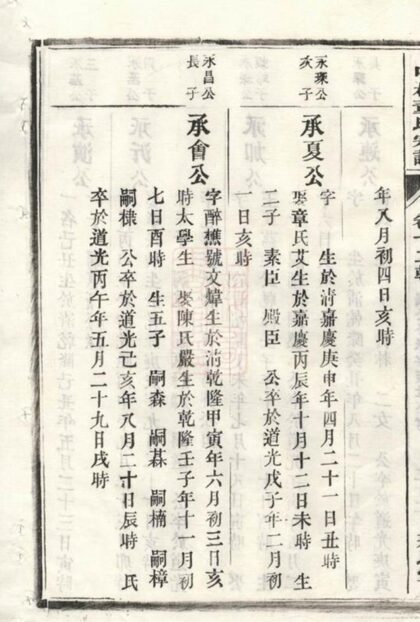 年八月初四日亥時
永琛公
次子
承夏公
字　生於清嘉慶庚申年四月二十一日丑時
娶章氏艾生於嘉慶丙辰年十月十二日未時　生
二子　素臣　殿臣　公卒於道光戊子年二月
一日亥時
永昌公
長子
承會公
字醉樵號文煒生於清乾隆甲寅年六月初三日亥
時太學生　娶陳氏嚴生於乾隆壬子年十一月初
七日酉時　生五子　嗣森　嗣棊　嗣楠　嗣樟
嗣棣　公卒於道光己亥年八月二十日辰時　氏
卒於道光丙午年五月二十九日戌時